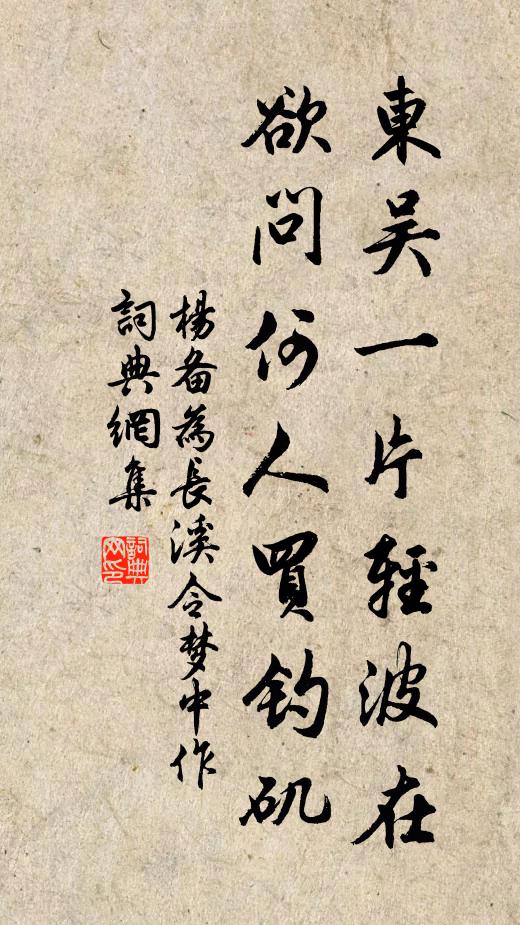 東吴一片輕波在
欲問何人買釣矶
楊备為長溪令梦中作
詞典網集
詞典
网印